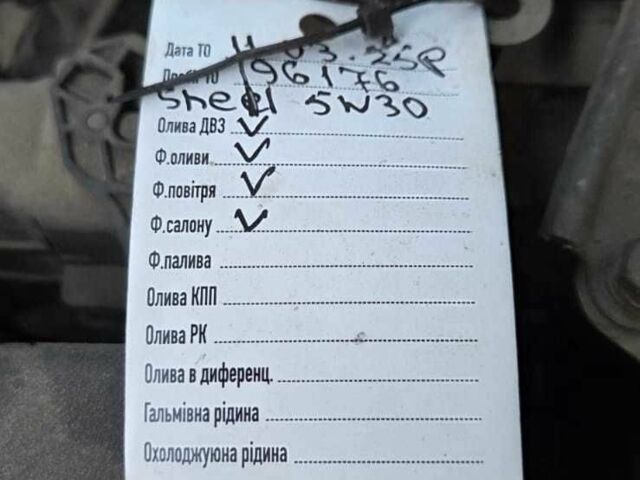 Дата ТО 11.03.25р
Пробіг ТО 196176
Shell 5W30
Олива ДВЗ ✓
Ф.оливи ✓
Ф.повітря ✓
Ф.салону ✓
Ф.палива
Олива КПП
Олива РК
Олива в диференц.
Гальмівна рідина
Охолоджуюна рідина